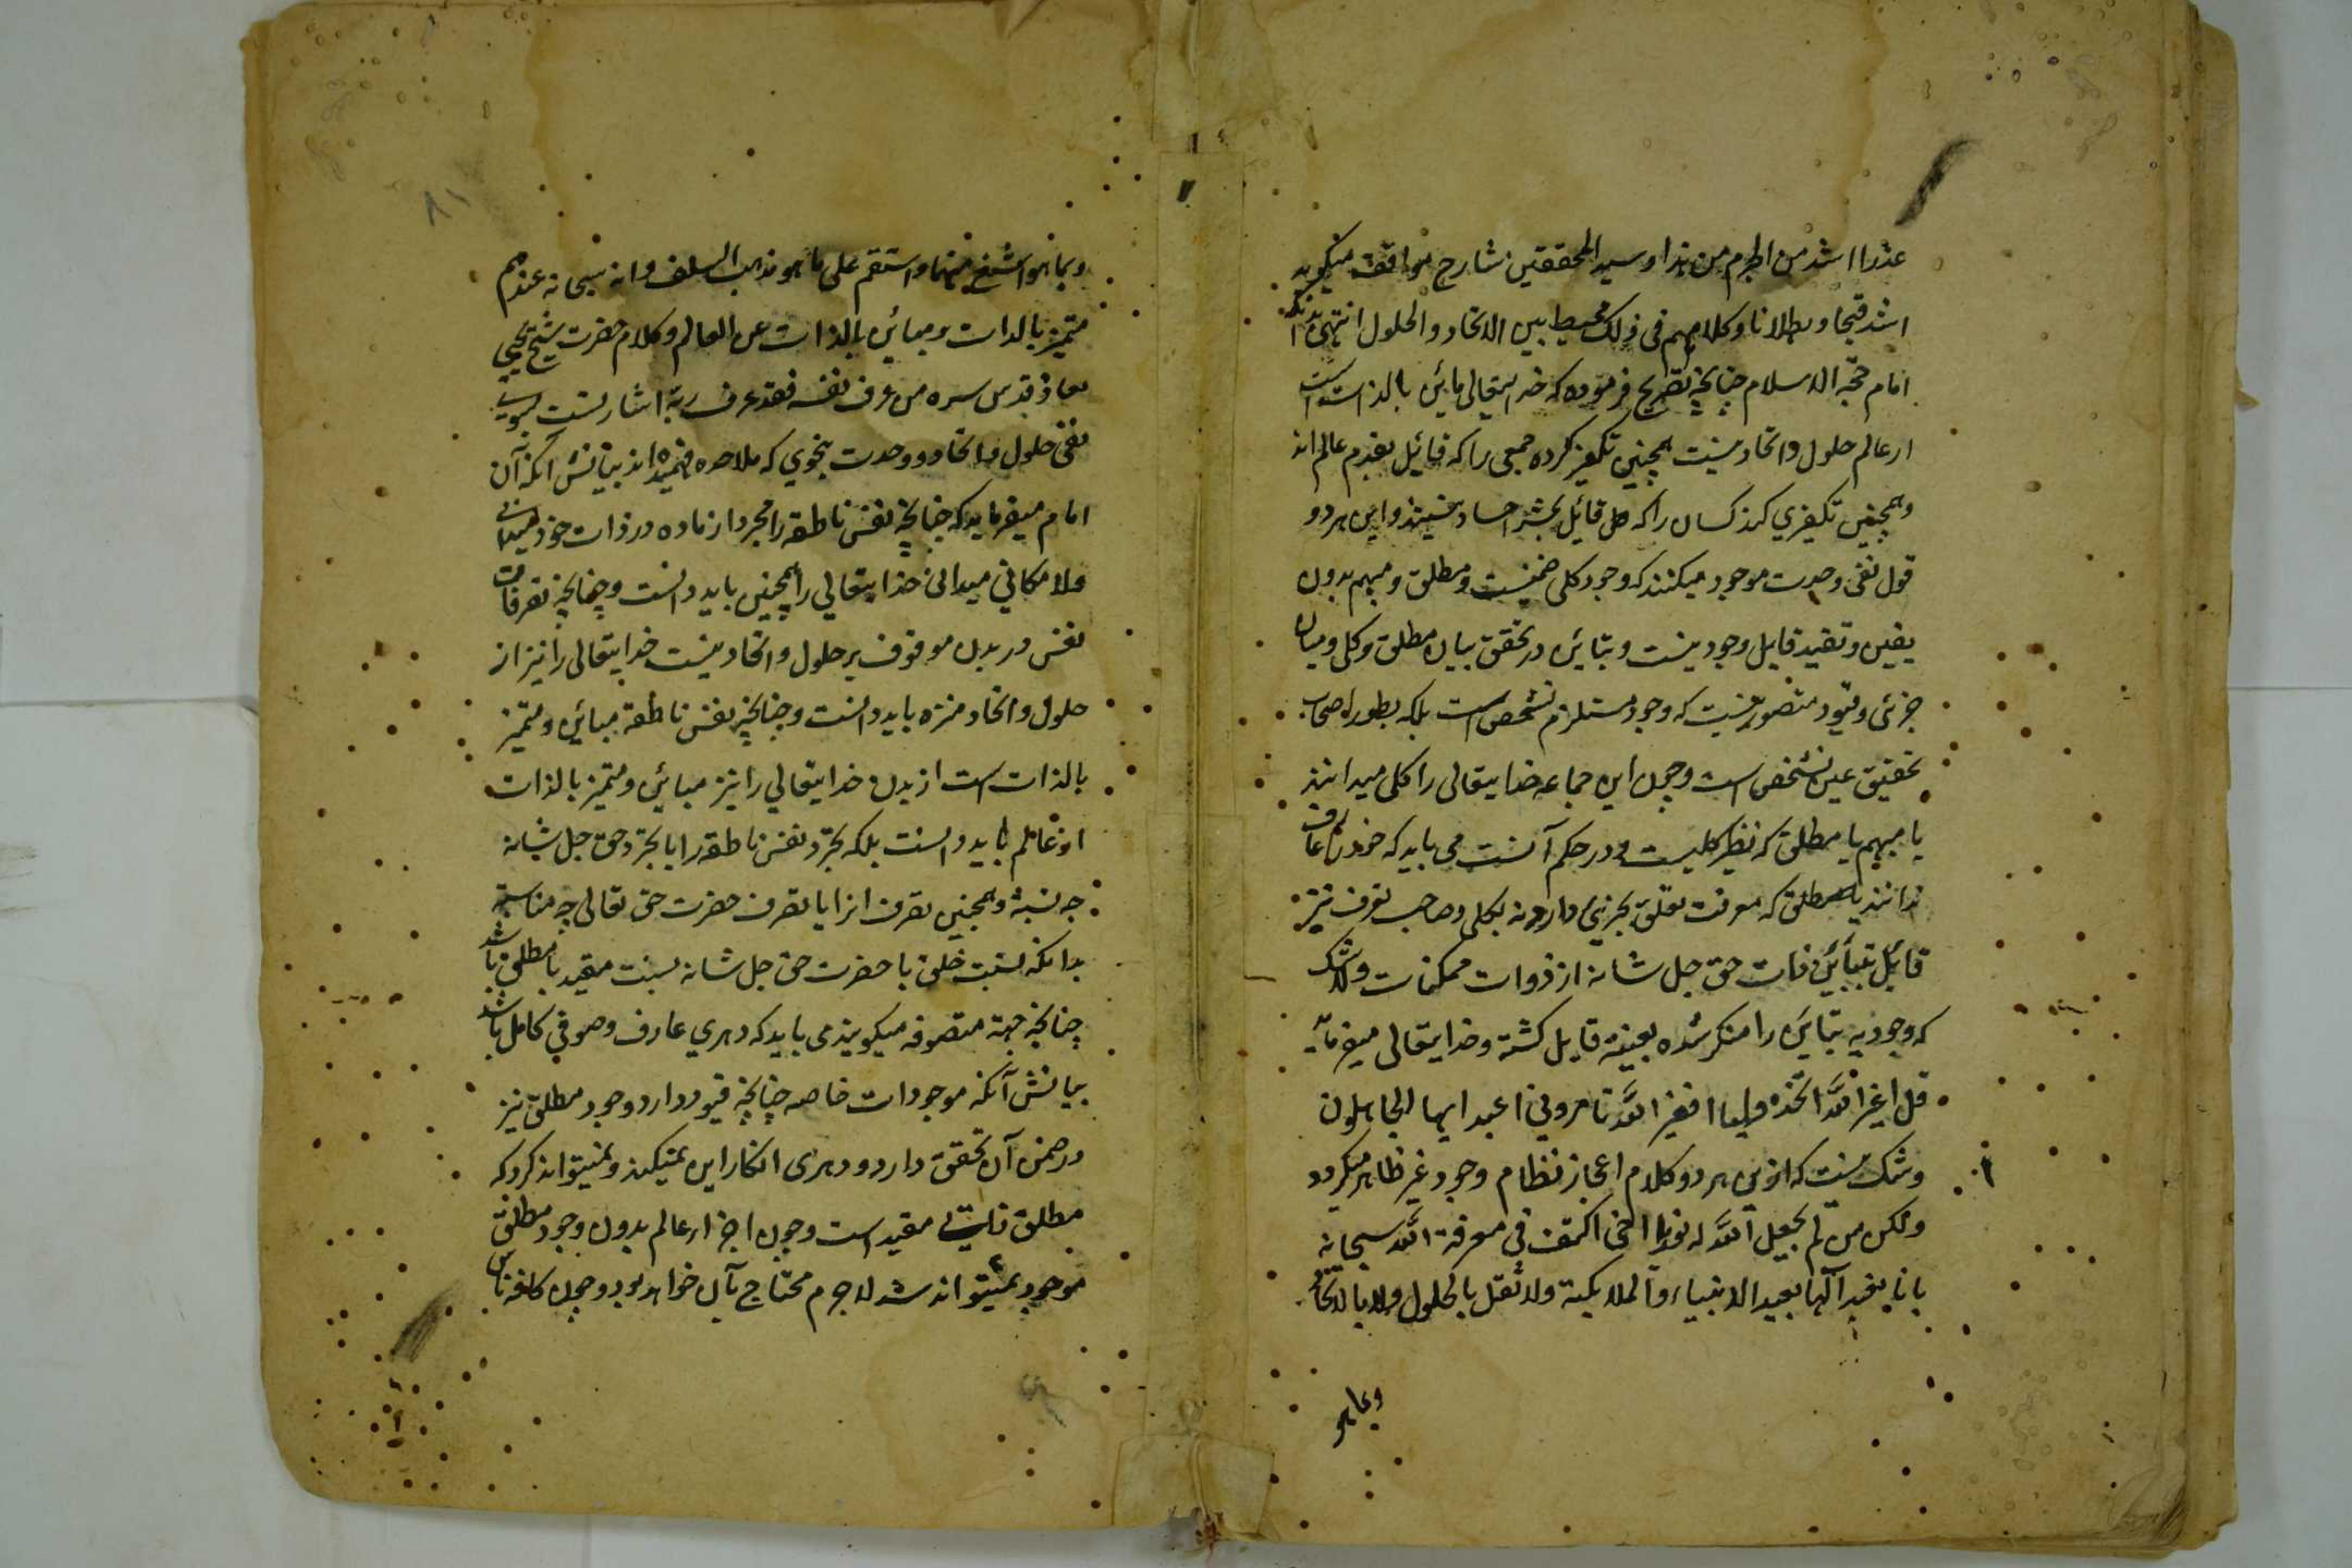 عذرا اشد من الجرم من هذا و سید المحققین شارح مواقف میکوید
اشد قبحا و بطلانا و کلامهم فی ذلک مخیط بین الاتحاد و الحلول انتهی بدانکه
امام حجة الاسلام چنانچه تصریح فرموده که خدایتعالی مبائن بالذات است
از عالم حلول و اتحاد نیست همچنین تکفیر کرده جمعی را که قائیل بقدم عالم اند
و همچنین تکفیری کند کسان را که قائیل بحشر اجساد نیستند و این هر دو
قول نفی وحدت موجود میکنند که وجود کلی ضمنیست و مطلق و مبهم بدون
یقین و تقید قابل وجود نیست و تبائن در تحقق بیان مطلق و کلی و میان
جزئی و قیود متصور نیست که وجود مستلزم تشخص است بلکه بطور اصحاب
تحقیق عین تشخص است و چون این جماعه خدایتعالی را کلی میدانند
یا مبهم یا مطلق که نظیر کلیست و در حکم آنست می باید که خود را عارف
ندانند که معرفت تعلق بجزئی دارد نه بکلی و صاحب تعرف نیز
قایل بتبائن ذات حق جل شانه از ذوات ممکنات و لا شک
که وجودیه تبائن را منکر شده بعینیة قایل کشته و خدایتعالی میفرماید
قل اغیر الله اتخذ ولیا افغیر الله تامرونی اعبد ایها الجاهلون
و شک نیست که ازین هر دو کلام اعجاز نظام وجود غیر ظاهر میکردد
ولکن من لم یجعل الله له نورا اخی اکتف فی معرفة الله سبحانه
بانا نعبد الها یعبد الانبیاء و الملایکة ولا تقل بالحلول ولا بالاتحاد
و بما هو
و بما هو اشنع منهما و استقم علی ما هو مذهب السلف و انه سبحانه عندهم
متمیز بالذات و مبائن بالذات عن العالم و کلام حضرت شیخ یحیی
معاذ قدس سره من عرف نفسه فقد عرف ربه اشارتست بسوی
نفی حلول و اتحاد و وحدت بنحوی که ملاحده فهمیده اند بیانش آنکه آن
امام میفرماید که چنانچه نفس ناطقه را مجرد از ماده در ذات خود میدانی
و لا مکانی میدانی خدایتعالی را همچنین باید دانست و چنانچه تصرفات
نفس در بدن موقوف بر حلول و اتحاد نیست خدایتعالی را نیز از
حلول و اتحاد منزه باید دانست و چنانچه نفس ناطقه مبائن و متمیز
بالذات است از بدن خدایتعالی را نیز مبائن و متمیز بالذات
از عالم باید دانست بلکه تجرد نفس ناطقه را با تجرد حق جل شانه
چه نسبة و همچنین تصرف انرا با تصرف حضرت حق تعالی چه مناسبة
بدانکه نسبت خلق با حضرت حق جل شانه نسبت مقید با مطلق باشد
چنانچه جهبة متصوفه میکویند می باید که دهری عارف و صوفی کامل باشد
بیانش آنکه موجودات خاصه چنانچه قیود دارد وجود مطلق نیز
در ضمن آن تحقق دارد و دهری انکار این نمیکند و نمیتواند کرد که
مطلق مقید است و چون اجزار عالم بدون وجود مطلق
موجود نمیتواند شد لا جرم محتاج بآن خواهد بود و چون کافه ناس